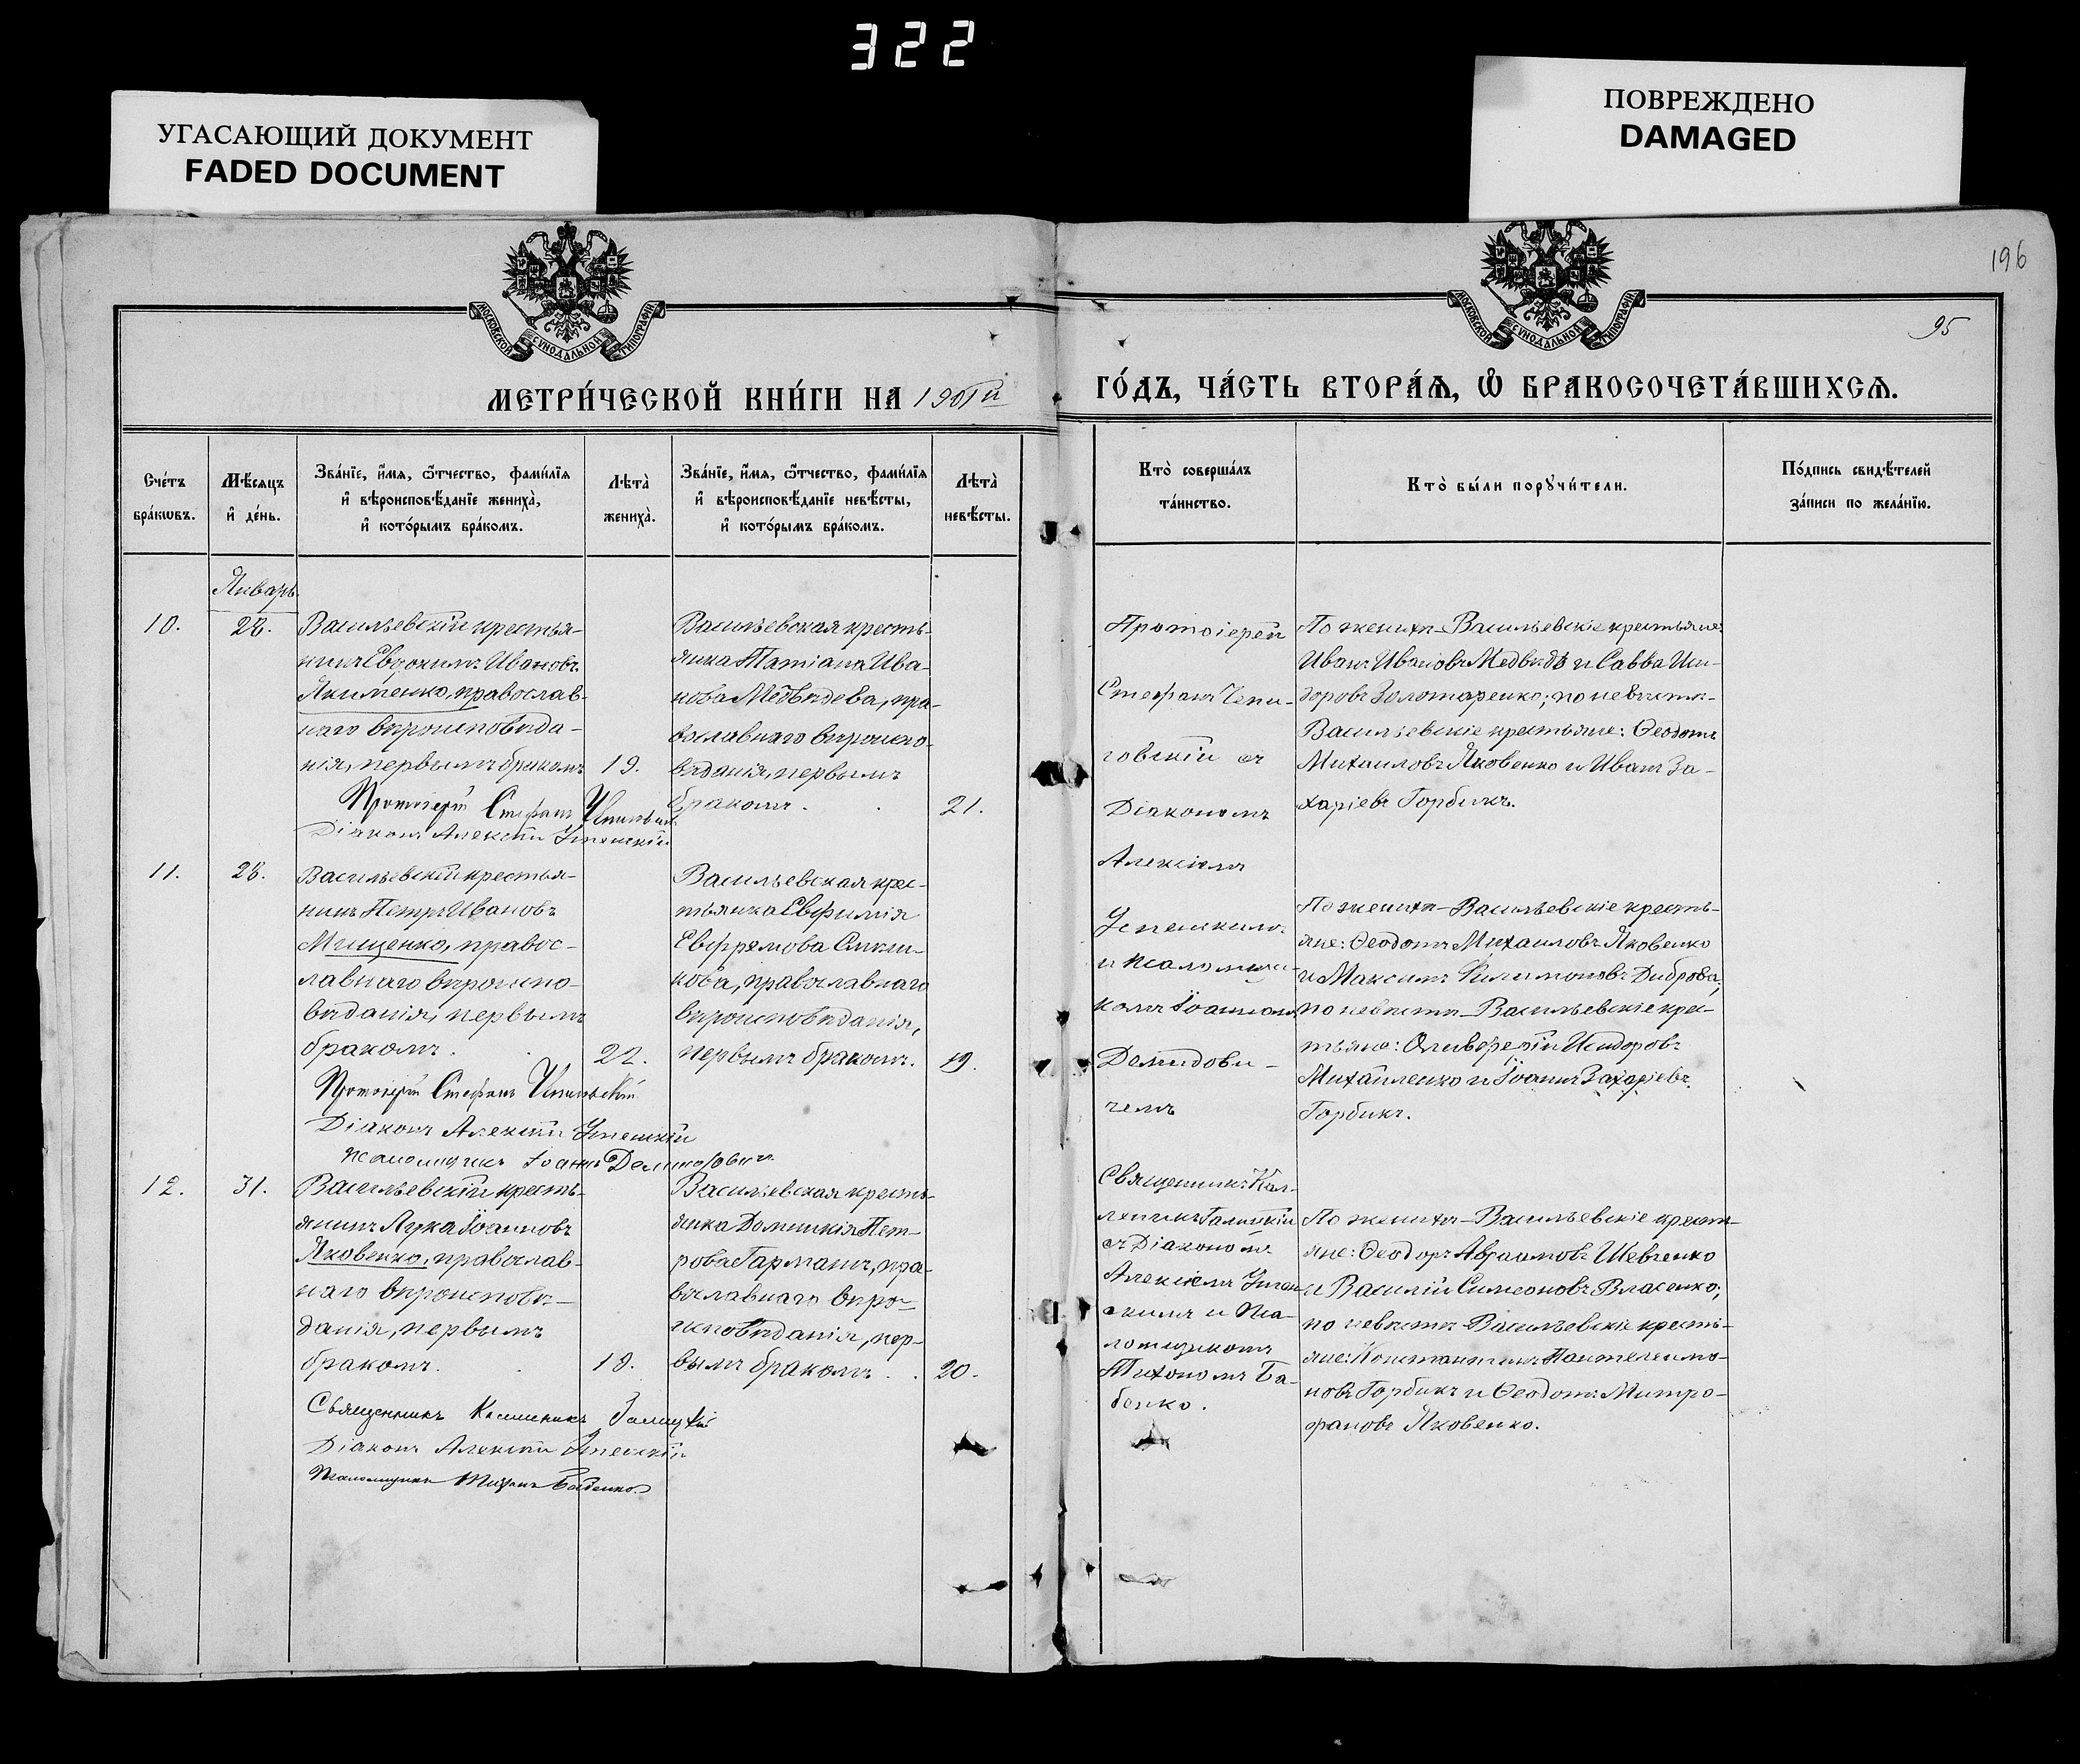 322
УГАСАЮЩИЙ ДОКУМЕНТ
FADED DOCUMENT
ПОВРЕЖДЕНО
DAMAGED
196
95
МОСКОВСКОЙ СѴНОДАЛЬНОЙ ТИПОГРАФІИ
МОСКОВСКОЙ СѴНОДАЛЬНОЙ ТИПОГРАФІИ
МЕТРИ́ЧЕСКОЙ КНИ́ГИ НА 1901й
ГО́ДЪ, ЧА́СТЬ ВТОРА́Ѧ, Ѿ БРАКОСОЧЕТА́ВШИХСѦ.
Сче́тъ
бра́кѡвъ.
Мѣ́сяцъ
и҆ де́нь.
Зва́нїе, и҆́мя, ѻ҆́тчество, фами́лїя
и҆ вѣроисповѣ́данїе жениха̀,
и҆ кото́рымъ бра́комъ.
Лѣта̀
жениха̀.
Зва́нїе, и҆́мя, ѻ҆́тчество, фами́лїя
и҆ вѣроисповѣ́данїе невѣ́сты,
и҆ кото́рымъ бра́комъ.
Лѣта̀
невѣ́сты.
Кто̀ соверша́лъ
та́инство.
Кто̀ бы́ли порꙋчи́тели.
По́дпись свидѣ́телей
за́писи по жела́нїю.
Январь
10.
28.
Васильевскій крестья-
нинъ Евдокимъ Ивановъ
Якименко, православ-
наго вѣроисповѣда-
нія, первымъ бракомъ
19.
Протоіерей Стефанъ
Діаконъ Алексій Успенскій
Васильевская кресть-
янка Татіана Ива-
нова Медвѣдева, пра-
вославнаго вѣроиспо-
вѣданія, первымъ
бракомъ.
21.
Протоіерей
Стефанъ Чепи-
говскій съ
Діакономъ
Алексіемъ
Успенскимъ
и псаломщи-
комъ Іоанномъ
Демидови-
чемъ
По женихѣ – Васильевскіе крестьяне:
Иванъ Ивановъ Медвѣдь и Савва Иси-
доровъ Золотаренко; по невѣстѣ –
Васильевскіе крестьяне: Ѳеодотъ
Михаиловъ Яковенко и Иванъ За-
харіевъ Горбикъ.
11.
28.
Васильевскій крестья-
нинъ Петръ Ивановъ
Мищенко, правос-
лавнаго вѣроиспо-
вѣданія, первымъ
бракомъ.
22.
Протоіерей Стефанъ
Діаконъ Алексій Успенскій
Псаломщикъ Іоаннъ Демидовичъ
Васильевская крес-
тьянка Евфимія
Ефремова
кова, православнаго
вѣроисповѣданія,
первымъ бракомъ.
19.
По женихѣ – Васильевскіе кресть-
яне: Ѳеодотъ Михаиловъ Яковенко
и Максимъ Филимоновъ Диброва;
по невѣстѣ – Васильевскіе крес-
тьяне: Исидоровъ
Михайленко и Іоаннъ Захаріевъ
Горбикъ.
12.
31.
Васильевскій кресть-
янинъ Лука Іоанновъ
Яковенко, православ-
наго вѣроисповѣ-
данія, первымъ
бракомъ.
19.
Священникъ Каллиникъ Галицкій
Діаконъ Алексій Успенскій
Псаломщикъ Тихонъ Бабенко
Васильевская кресть-
янка Домникія Пет-
рова Гарматъ, пра-
вославнаго вѣро-
исповѣданія, пер-
вымъ бракомъ.
20.
Священникъ Кал-
линикъ Галицкій
съ Діакономъ
Алексіемъ Успен-
скимъ и Пса-
ломщикомъ
Тихономъ Ба-
бенко.
По женихѣ – Васильевскіе кресть-
яне: Ѳеодоръ Авраамовъ Шевченко
и Василій Симеоновъ Власенко;
по невѣстѣ – Васильевскіе кресть-
яне: Константинъ Пантелеимо-
новъ Горбикъ и Ѳеодотъ Митро-
фановъ Яковенко.